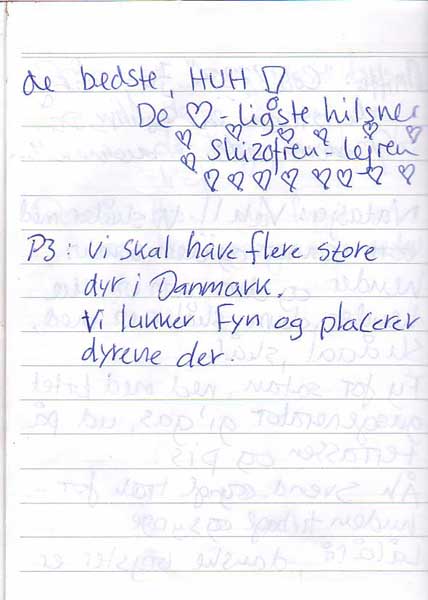 de bedste, HUH!
De ♡-ligste hilsner
Skizofren-lejren
P3: Vi skal have flere store
dyr i Danmark.
Vi lukker Fyn og placerer
dyrene der.